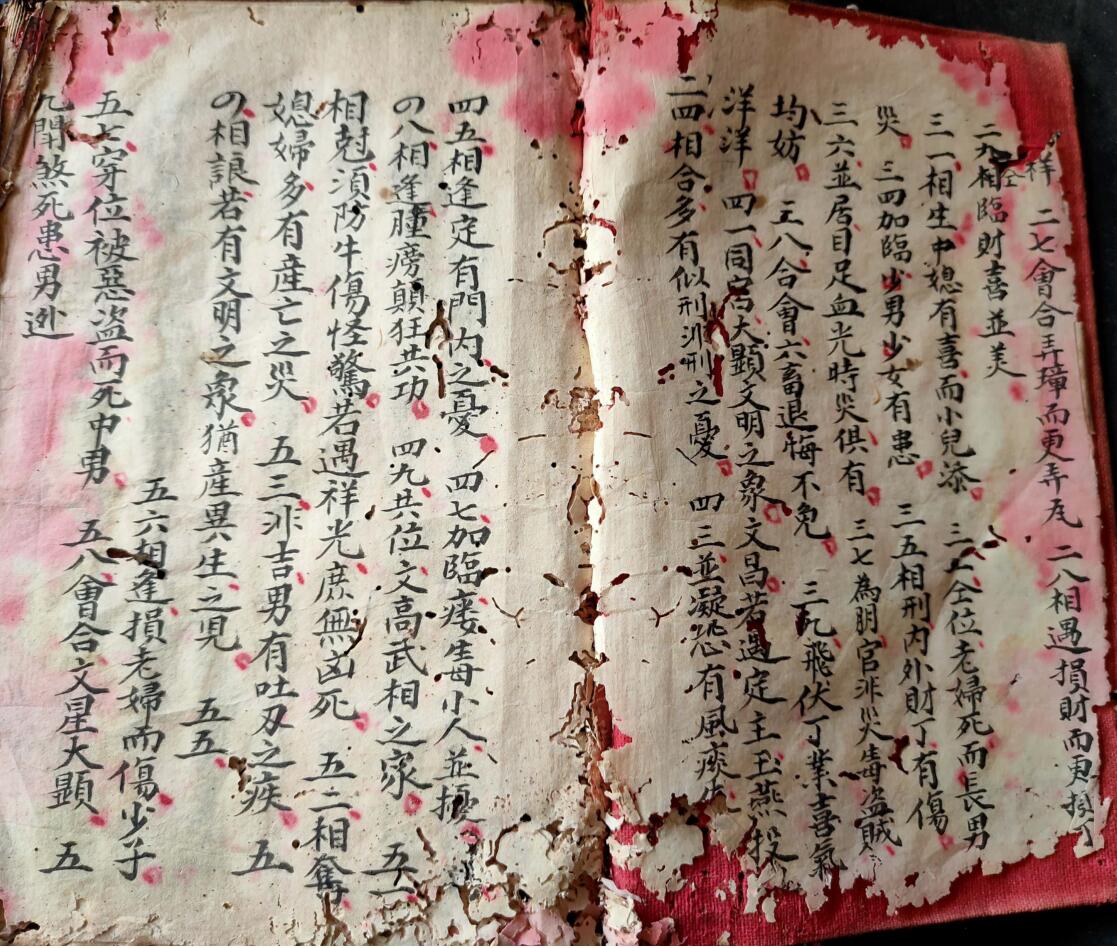 祥 二七會合弄璋而更弄瓦 二八相遇損財而更損丁
二九相臨財喜並美
三一相生中媳有喜而小兒添 三二仝位老婦死而長男
災 三四加臨少男少女有患 三五相刑内外財丁有傷
三六並居目足血光時災俱有 三七為朋官非災毒盗賊
均妨 三八合會六畜退悔不免 三九飛伏丁業喜氣
洋洋 四一同宮大顯文明之象文昌若遇定主玉燕投
二四相合多有似刑非刑之憂 四三並凝恐有風痰
四五相逢定有門内之憂 四七加臨瘘毒小人並擾
の八相逢腫痨顛狂共功 四九共位文高武相之家 五一
相尅須防牛傷怪驚若遇祥光庶無凶死 五二相奪
媳婦多有産亡之災 五三非吉男有吐刃之疾 五
の相誏若有文明之象猶産異生之児 五五
五六相逢損老婦而傷少子
五七穿位被惡盗而死中男 五八會合文星大顯 五
九開煞死患男逊